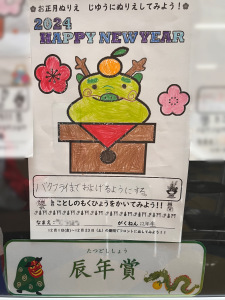 お正月ぬりえ じゆうにぬりえしてみよう！
2024
HAPPY NEW YEAR
バタフライまでおよげるようにする
ことしのもくひょうをかいてみよう!!
なまえ
がくねん
たつどししょう
辰年賞